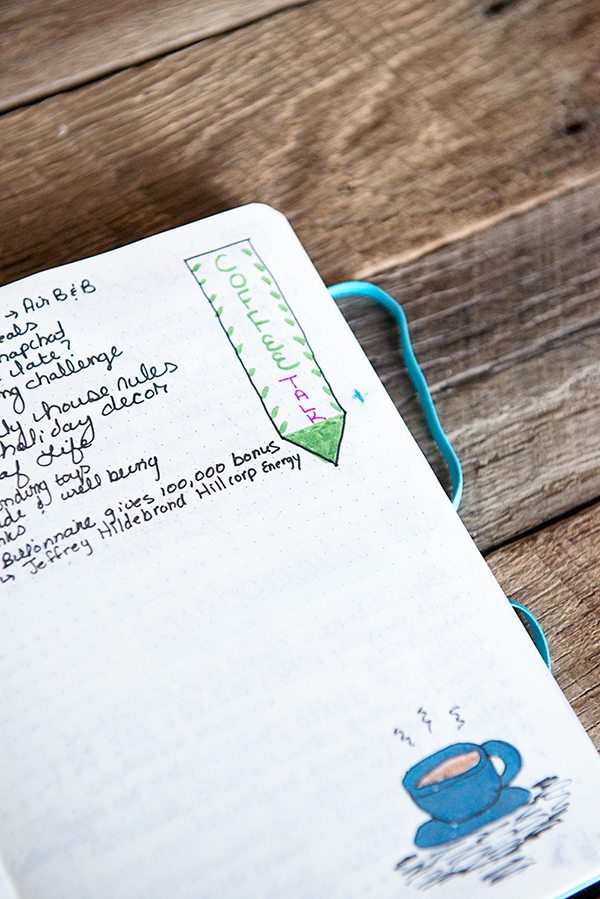 → Air B & B
eals
napchat
date?
ng challenge
ly house rules
holiday decor
of life
onding toys
ude & well being
nks
Billionnaire gives 100,000 bonus
↳ Jeffrey Hildebrand Hillcorp Energy
COFFEE TALK